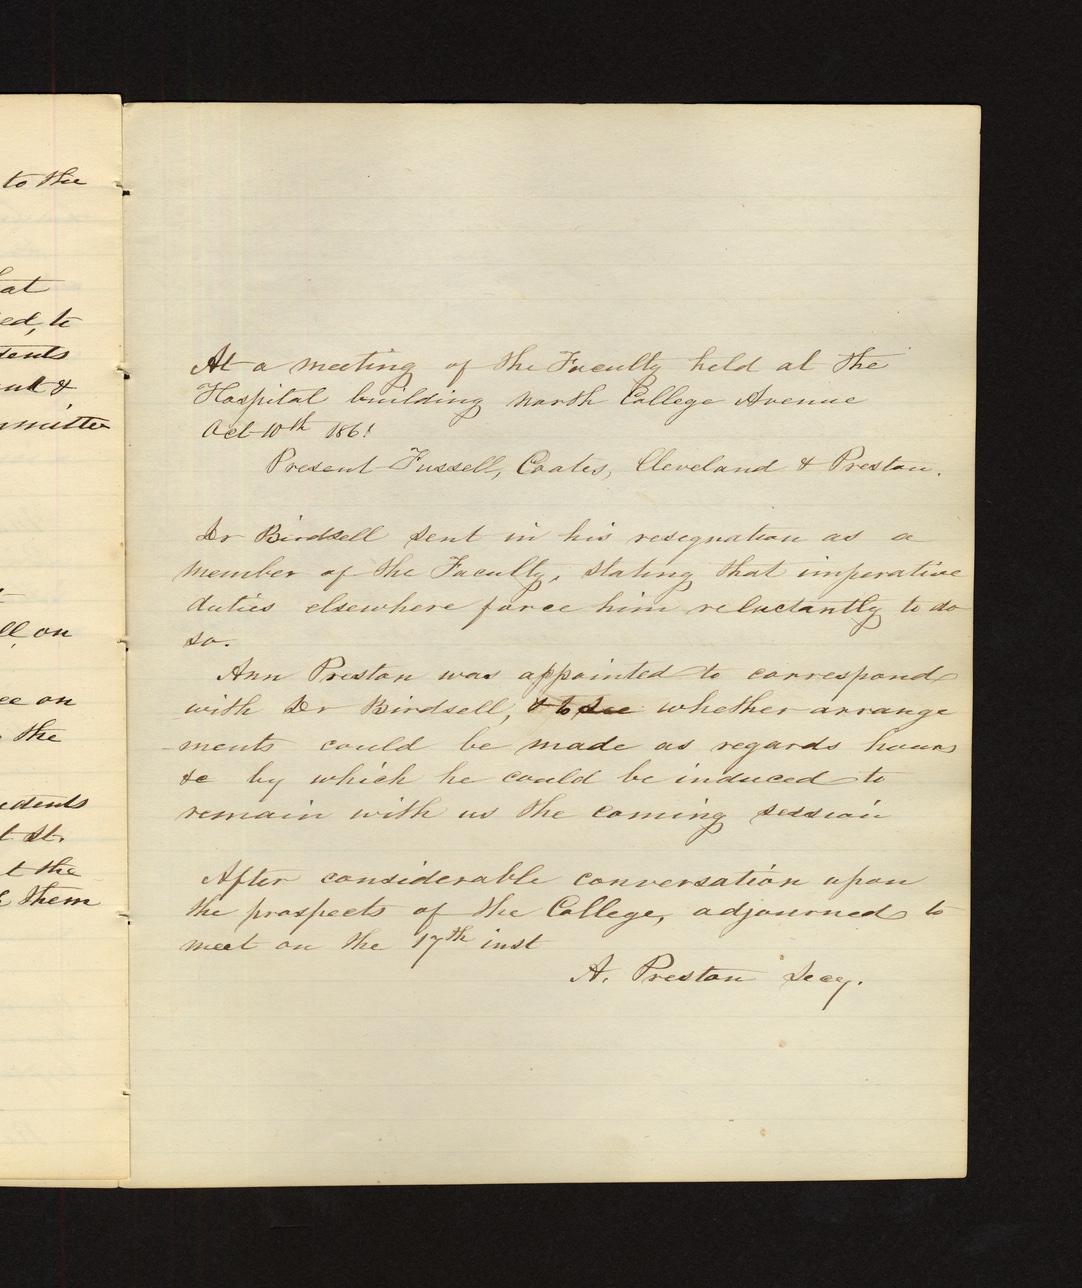 to the
at
ed, to
dents
ent &
mmittee
ll on
ee on
the
udents
t St.
t the
them
At a meeting of the Faculty held at the
Hospital building North College Avenue
Oct 10th 1861
Present Fussell, Coates, Cleveland & Preston.
Dr Birdsell sent in his resignation as a
member of the Faculty, stating that imperative
duties elsewhere force him reluctantly to do
so.
Ann Preston was appointed to correspond
with Dr Birdsell, & to see whether arrange
ments could be made as regards hours
&c by which he could be induced to
remain with us the coming session
After considerable conversation upon
the prospects of the College, adjourned to
meet on the 17th inst
A. Preston Secy.